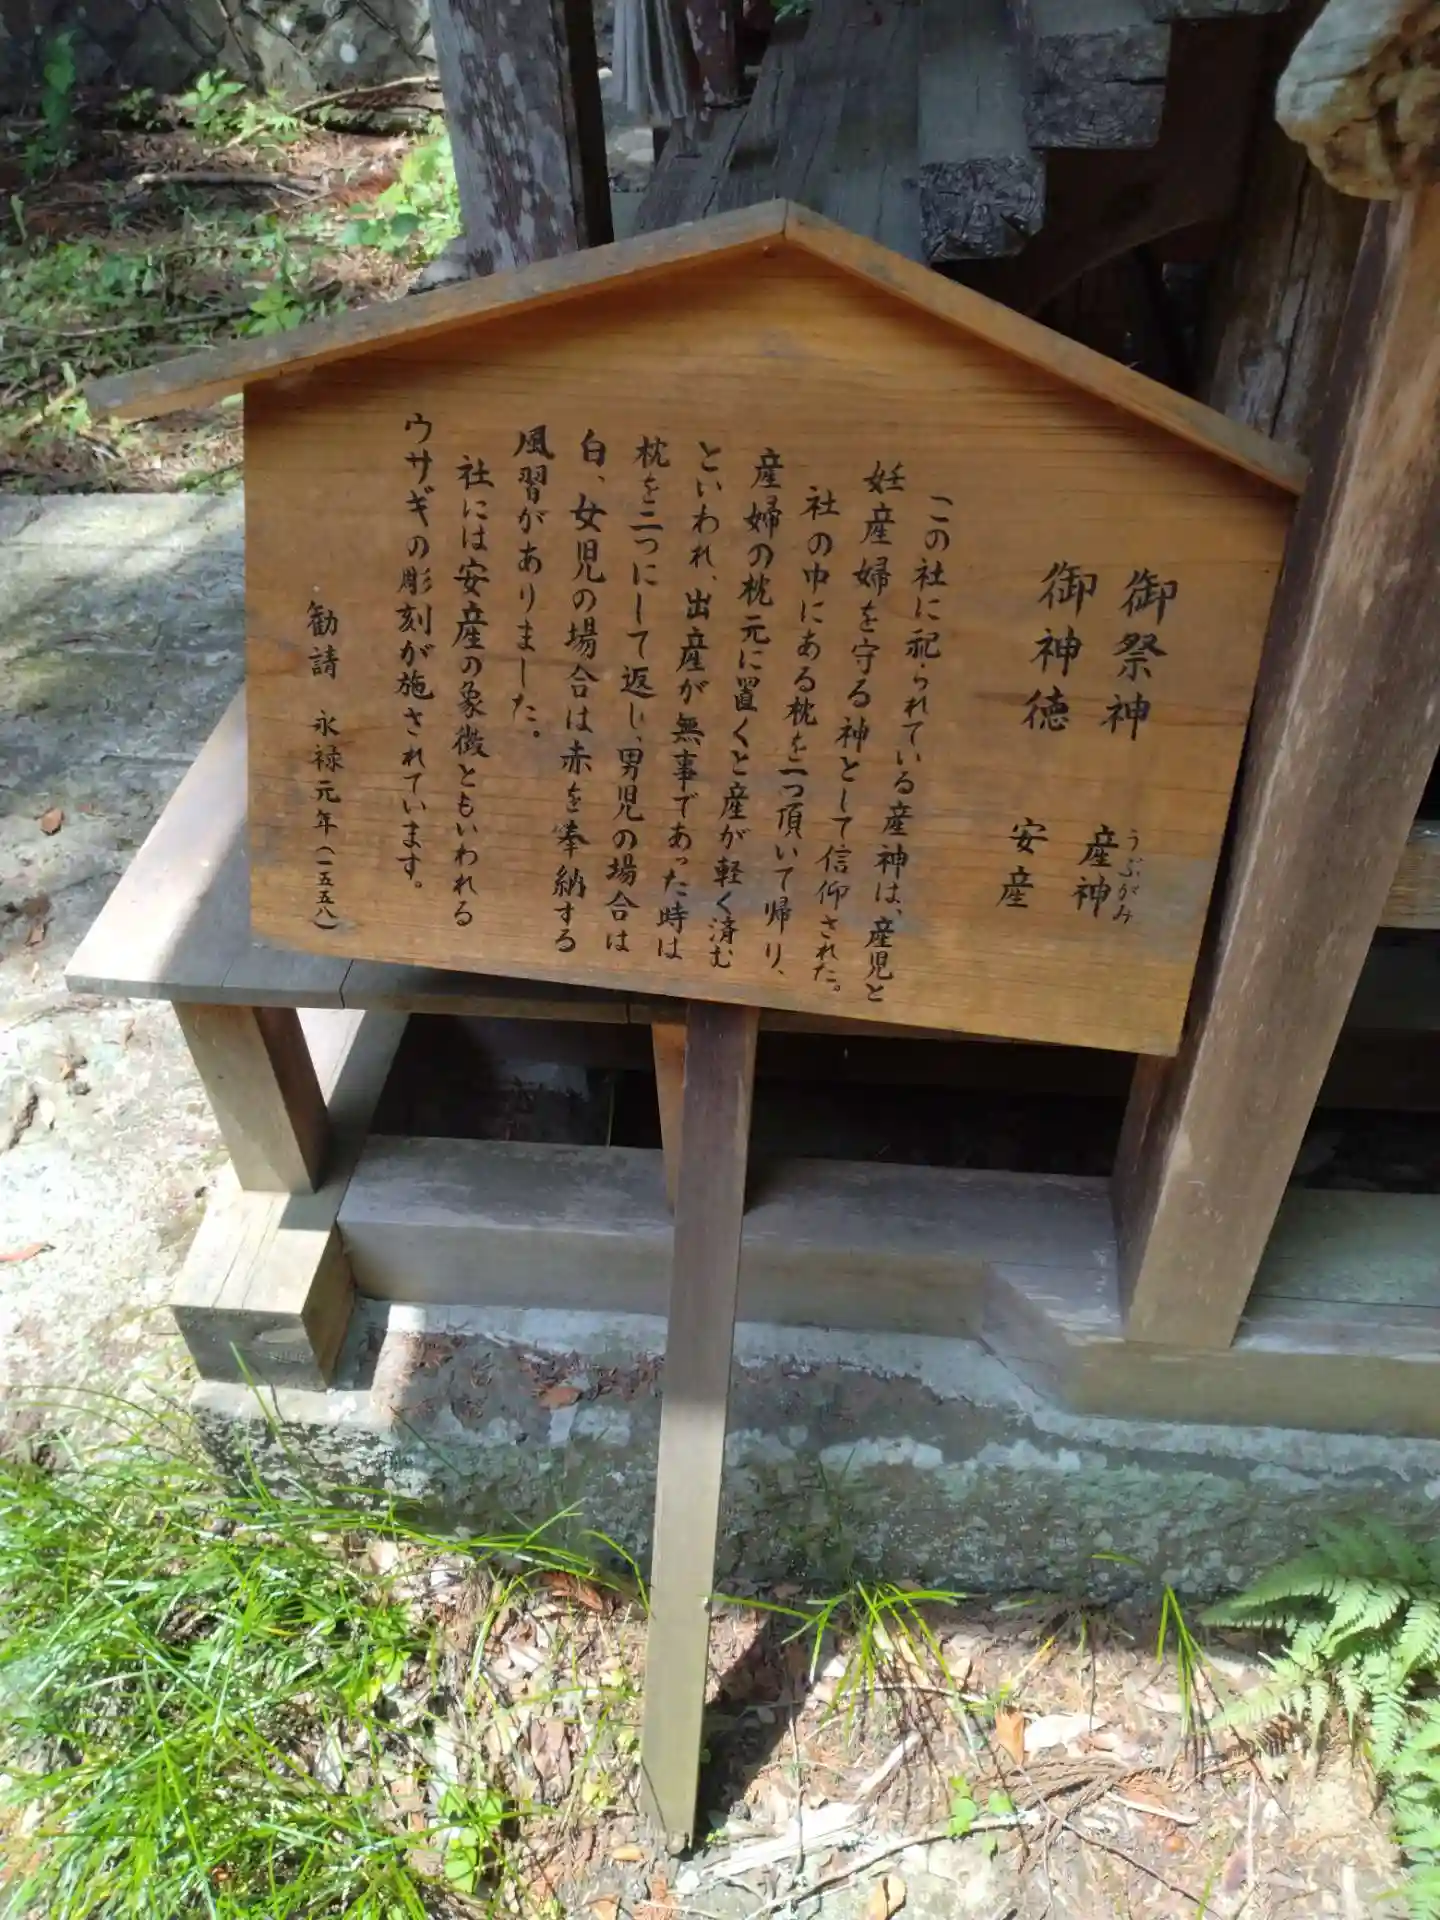 御祭神 産神
うぶがみ
御神徳 安産
この社に祀られている産神は、産児と
妊産婦を守る神として信仰された。
社の中にある枕を一つ頂いて帰り、
産婦の枕元に置くと産が軽く済む
といわれ、出産が無事であった時は
枕を二つにして返し、男児の場合は
白、女児の場合は赤を奉納する
風習がありました。
社には安産の象徴ともいわれる
ウサギの彫刻が施されています。
勧請 永禄元年(一五五八)